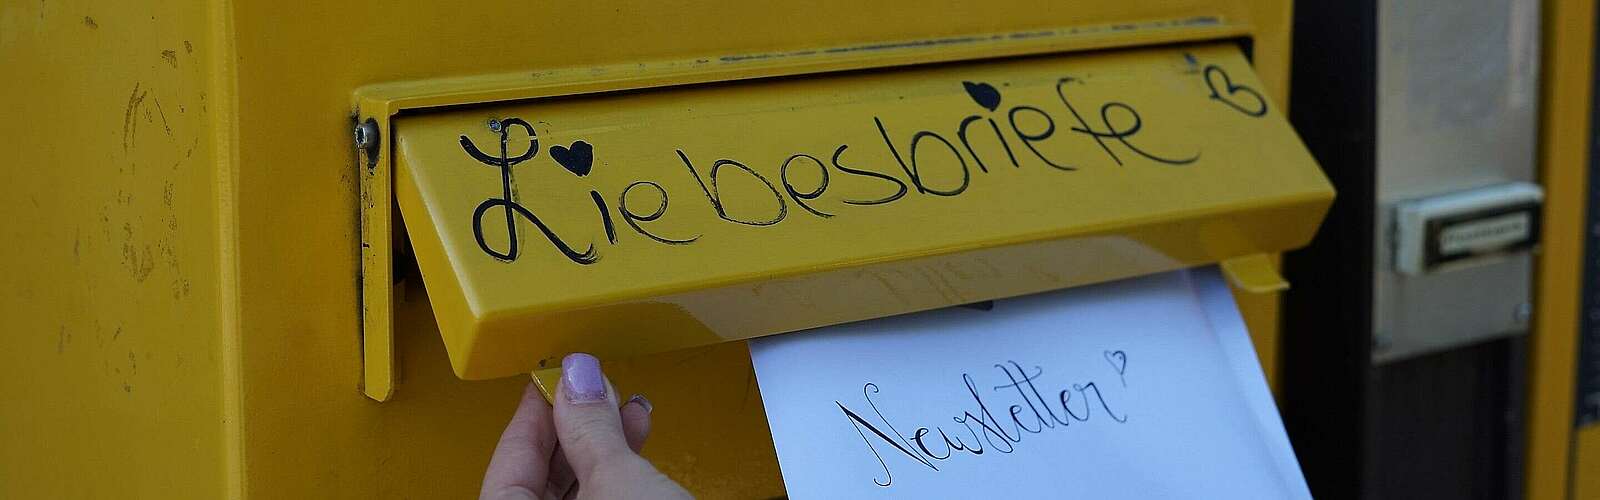 Liebesbriefe
Newsletter